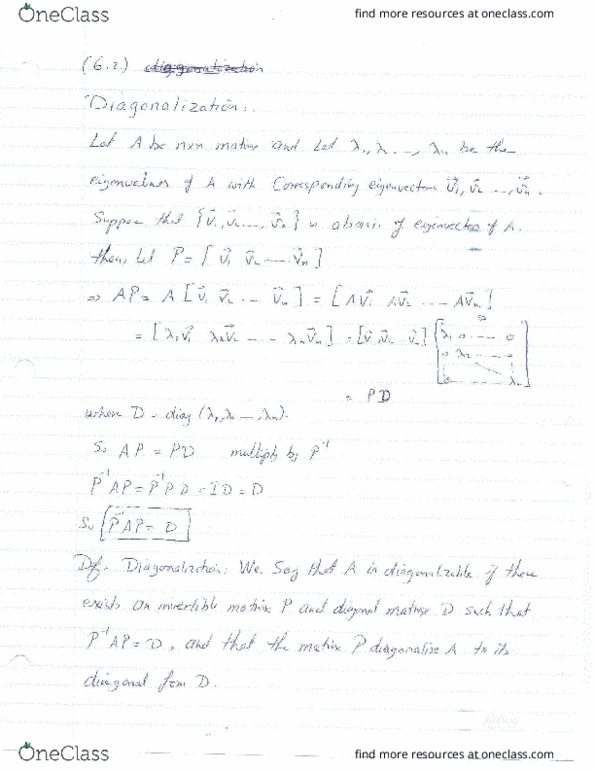 OneClass find more resources at oneclass.com
(6.2) diagonalization
Diagonalization:
Let A be n×n matrix and Let λ₁, λ₂ ..., λn be the
eigenvalues of A with Corresponding eigenvectors v⃗₁, v⃗₂ ..., v⃗n.
Suppose that {v⃗₁, v⃗₂, ..., v⃗n} is a basis of eigenvectors of A.
then, Let P = [v⃗₁ v⃗₂ ... v⃗n]
⇒ AP = A [v⃗₁ v⃗₂ ... v⃗n] = [Av⃗₁ Av⃗₂ ... Av⃗n]
= [λ₁v⃗₁ λ₂v⃗₂ - - λnv⃗n] = [v⃗₁ v⃗₂ ... v⃗n] [λ₁ 0 ... 0
0 λ₂ ... 0
0 ... λn]
= PD
where D = diag (λ₁, λ₂ ..., λn).
So AP = PD multiply by P⁻¹
P⁻¹AP = P⁻¹PD = ID = D
So P⁻¹AP = D
Df. Diagonalization: We Say that A is diagonalizable if there
exists an invertible matrix P and diagonal matrix D such that
P⁻¹AP = D, and that the matrix P diagonalize A to its
diagonal form D.
OneClass find more resources at oneclass.com